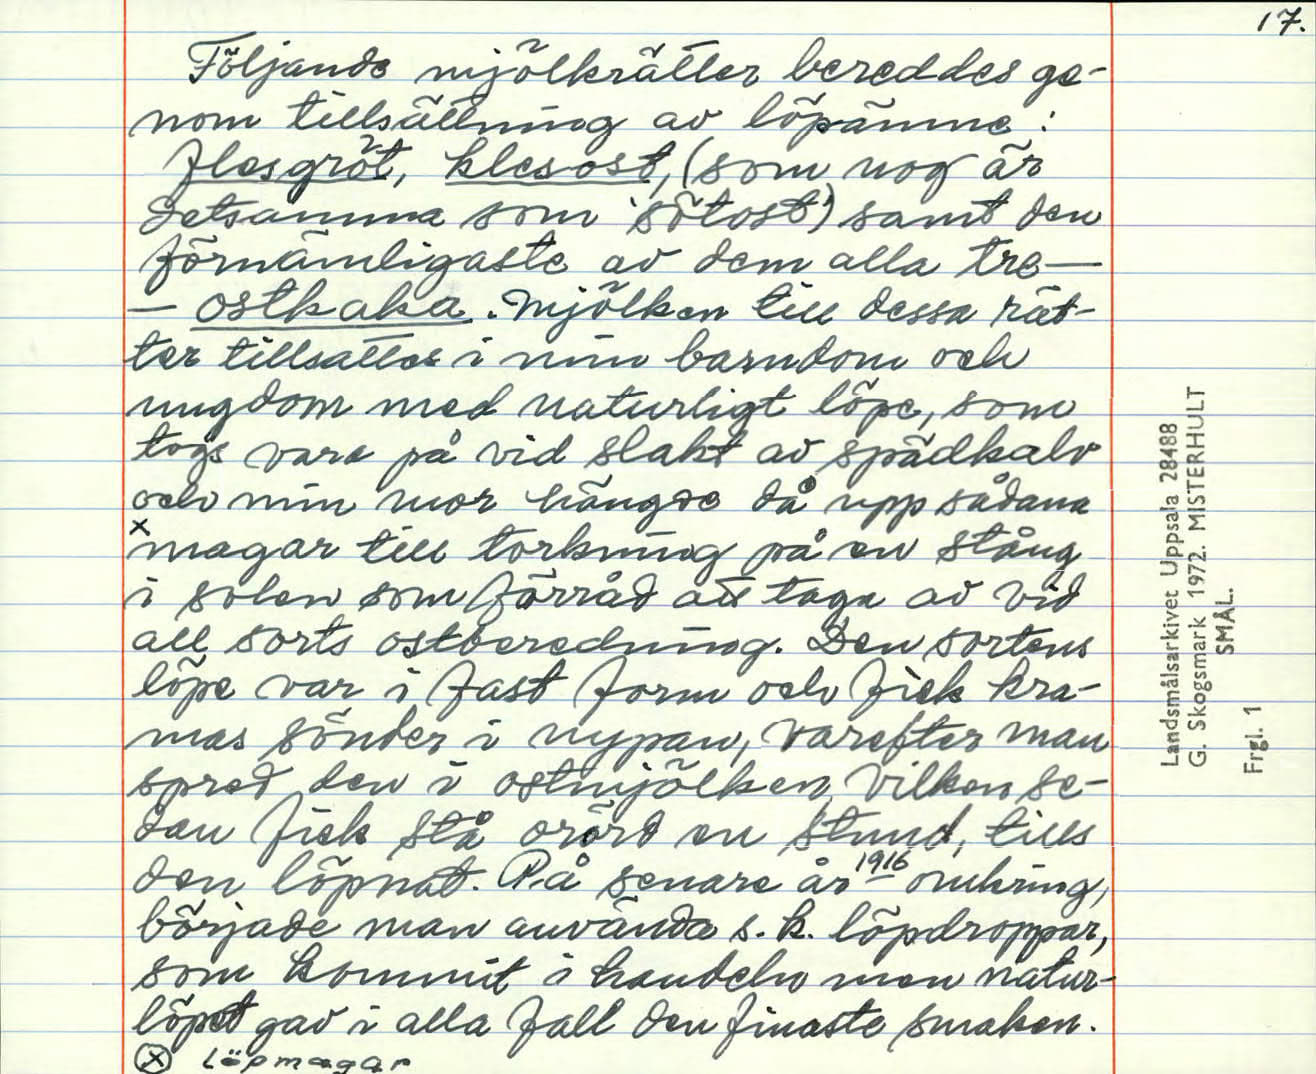 17.
Följande mjölkrätter bereddes ge-
nom tillsättning av löpämne:
flesgröt, klesost, (som nog är
detsamma som 'sötost') samt den
förnämligaste av dem alla tre —
— ostkaka. Mjölken till dessa rät-
ter tillsattes i min barndom och
ungdom med naturligt löpe, som
togs vara på vid slakt av spädkalv
och min mor hängde då upp sådana
x
magar till torkning på en stång
i solen som förråd att taga av vid
all sorts ostberedning. Den sortens
löpe var i fast form och fick kra-
mas sönder i nypan, varefter man
spred den i ostmjölken, vilken se-
dan fick stå orörd en stund, tills
den löpnat. På senare år 1916 omkring,
började man använda s.k. löpdroppar,
som kommit i handeln men natur-
löpet gav i alla fall den finaste smaken.
x Löpmagar
Landsmålsarkivet Uppsala 28488
G. Skogsmark 1972. MISTERHULT
SMÅL.
Frgl. 1